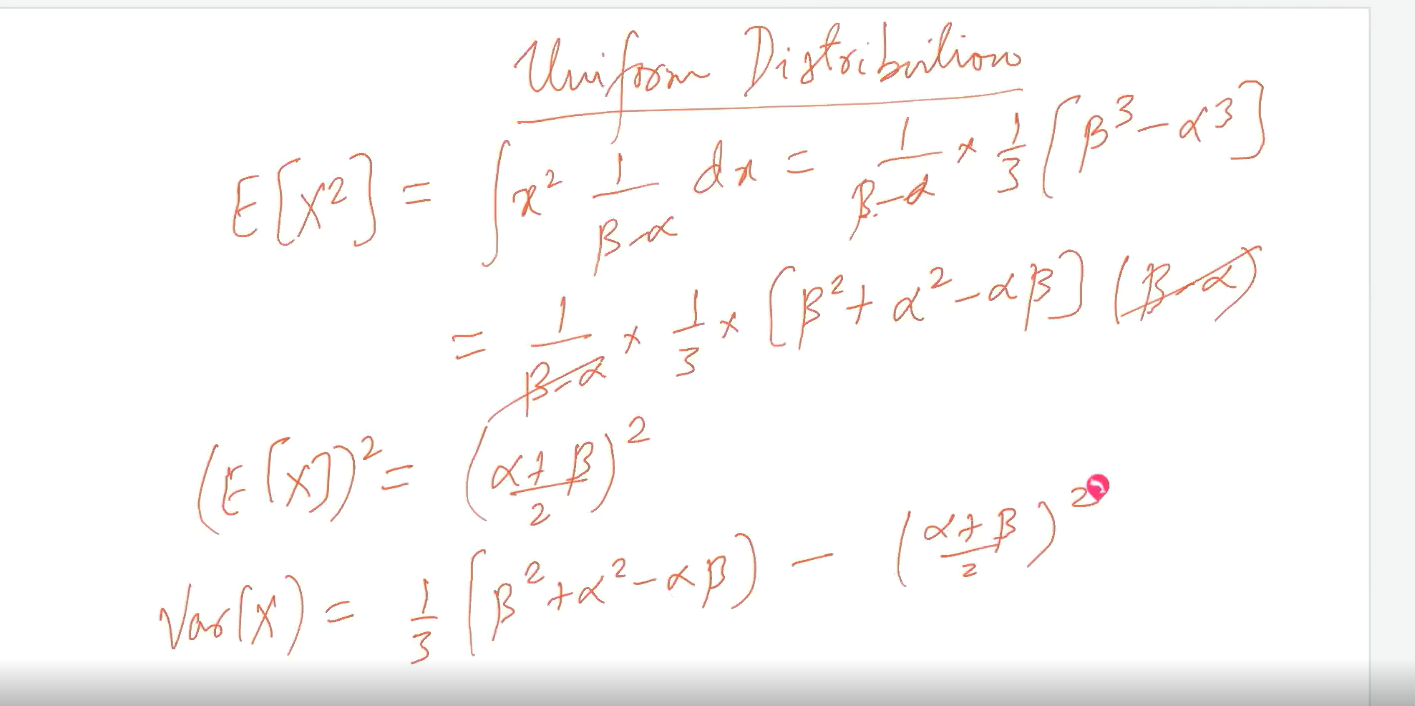 Uniform Distribution
E[X²] = ∫ x² 1/(β-α) dx = 1/(β-α) × 1/3 [β³-α³]
= 1/(β-α) × 1/3 × [β²+α²-αβ] (β-α)
(E[X])² = ((α+β)/2)²
Var(X) = 1/3 [β²+α²-αβ) - ((α+β)/2)²